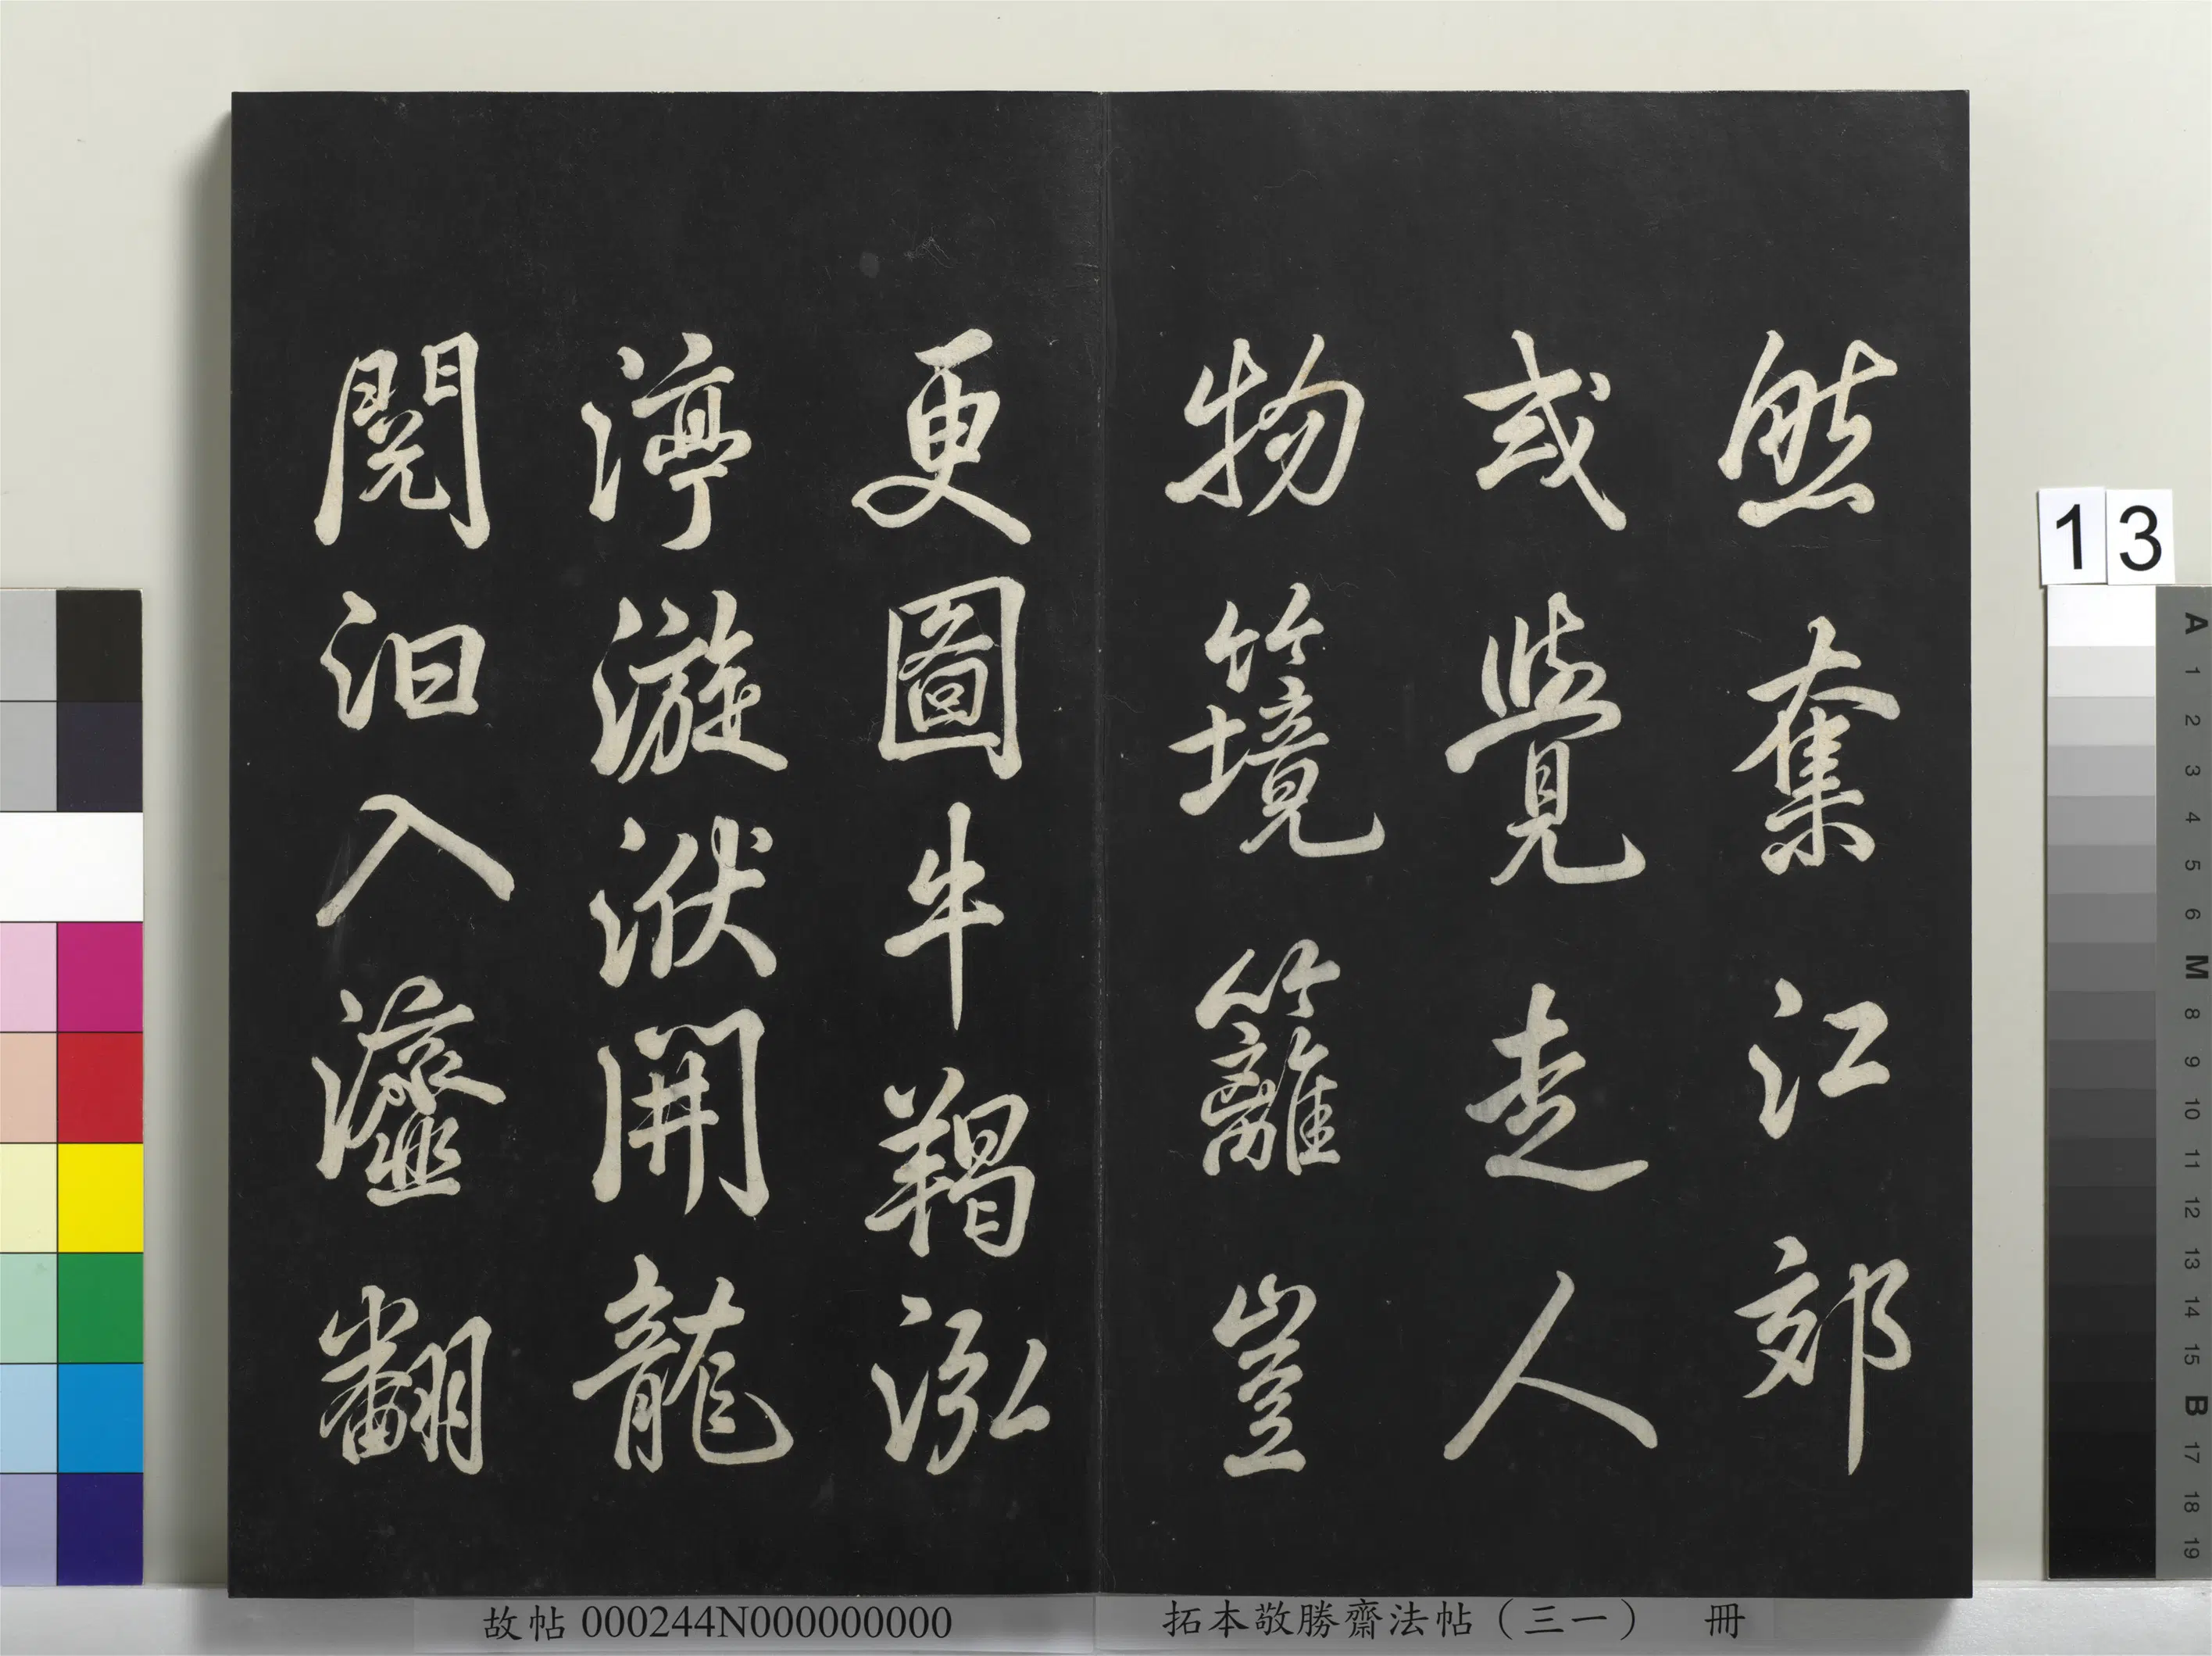 然奪江郊
或覺走人
物籬豈
更圖牛羯泓
渟漩洑開龍
閱汩入翻
13
故帖 000244N000000000
拓本敬勝齋法帖（三一） 冊
A 1 2 3 4 5 6 M 8 9 10 11 12 13 14 15 B 17 18 19